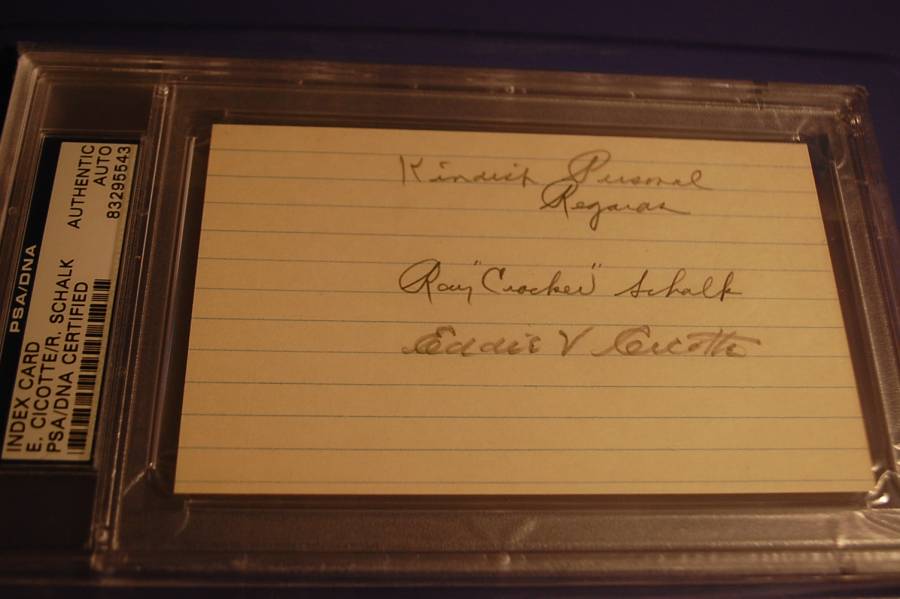 PSA/DNA
INDEX CARD
E. CICOTTE/R. SCHALK
PSA/DNA CERTIFIED
AUTHENTIC
AUTO
83295543
Kindest Personal
Regards
Ray "Cracker" Schalk
Eddie V Cicotte